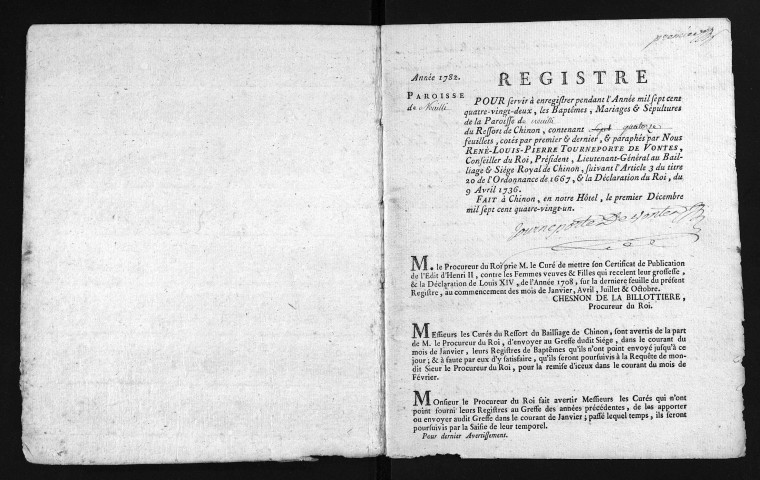 premier
Année 1782.
REGISTRE
PAROISSE
de Nouilli
POUR servir à enregistrer pendant l'Année mil sept cent
quatre-vingt-deux, les Baptêmes, Mariages & Sépultures
de la Paroisse de
du Ressort de Chinon, contenant sept quatorze
feuillets, cotés par premier & dernier, & paraphés par Nous
RENÉ-LOUIS-PIERRE TOURNEPORTE DE VONTES,
Conseiller du Roi, Président, Lieutenant-Général au Bail-
liage & Siége Royal de Chinon, suivant l'Article 3 du titre
20 de l'Ordonnance de 1667, & la Déclaration du Roi, du
9 Avril 1736.
FAIT à Chinon, en notre Hôtel, le premier Décembre
mil sept cent quatre-vingt-un.
Tourneporte De vontes
M. le Procureur du Roi prie M. le Curé de mettre son Certificat de Publication
de l'Edit d'Henri II, contre les Femmes veuves & Filles qui recelent leur grossesse,
& la Déclaration de Louis XIV, de l'Année 1708, sur la derniere feuille du présent
Registre, au commencement des mois de Janvier, Avril, Juillet & Octobre.
CHESNON DE LA BILLOTTIERE,
Procureur du Roi.
MEssieurs les Curés du Ressort du Bailliage de Chinon, sont avertis de la part
de M. le Procureur du Roi, d'envoyer au Greffe dudit Siége, dans le courant du
mois de Janvier, leurs Registres de Baptêmes qu'ils n'ont point envoyé jusqu'à ce
jour; & à faute par eux d'y satisfaire, qu'ils seront poursuivis à la Requête de mon-
dit Sieur le Procureur du Roi, pour la remise d'iceux dans le courant du mois de
Février.
MOnsieur le Procureur du Roi fait avertir Messieurs les Curés qui n'ont
point fourni leurs Registres au Greffe des années précédentes, de les apporter
ou envoyer audit Greffe dans le courant de Janvier; passé lequel temps, ils seront
poursuivis par la Saisie de leur temporel.
Pour dernier Avertissement.